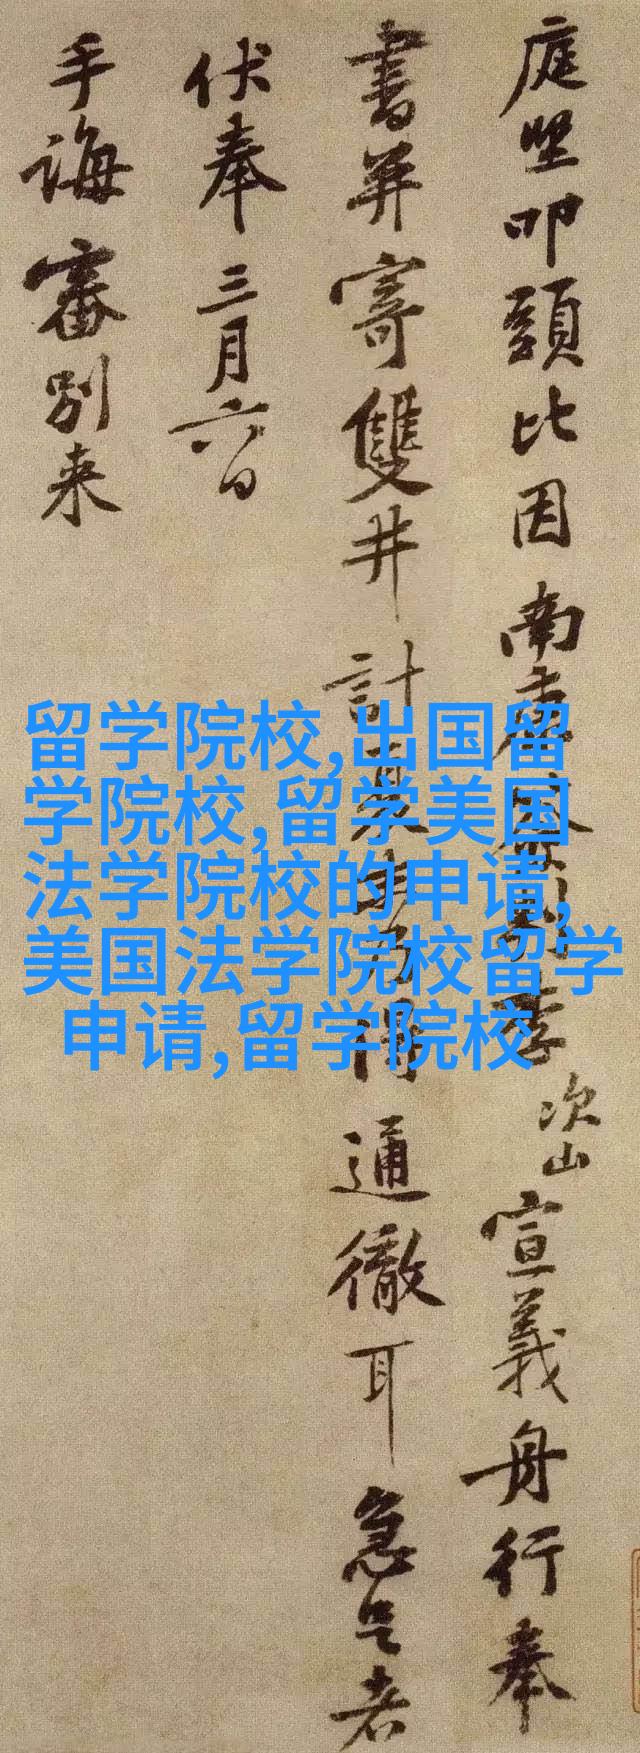 庭堅叩頭比因南康簽判李次山宣義舟行奉
書并寄雙井計夏中乃得通徹耳急足者
伏奉三月六日
手誨審別来
留学院校,出国留
学院校,留学美国
法学院校的申请,
美国法学院校留学
申请,留学院校